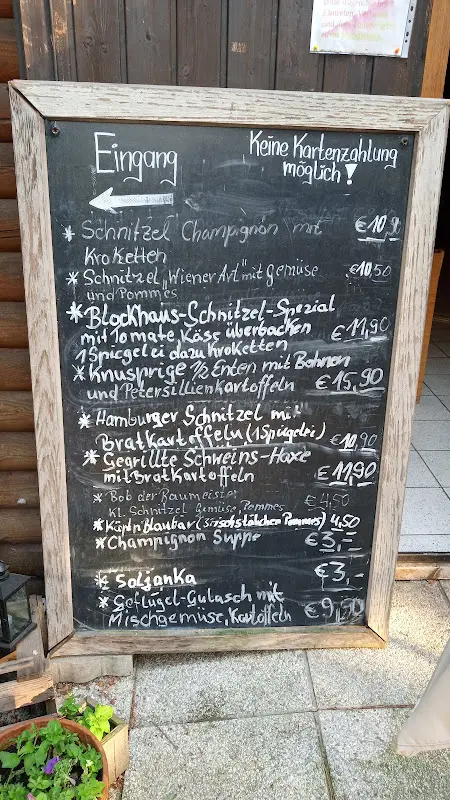 Eingang
Keine Kartenzahlung
möglich!
* Schnitzel Champignon mit €10,90
Kroketten
* Schnitzel „Wiener Art" mit Gemüse €10,50
und Pommes
* Blockhaus-Schnitzel-Spezial
mit Tomate Käse überbacken €11,90
1 Spiegelei dazu Kroketten
* Knusprige 1/2 Enten mit Bohnen
und Petersillienkartoffeln €15,90
* Hamburger Schnitzel mit
Bratkartoffeln (1 Spiegelei) €10,90
* Gegrillte Schweins-Haxe
mit Bratkartoffeln €11,90
* Bob der Baumeister
Kl. Schnitzel Gemüse, Pommes €4,50
* Käpt'n Blaubär (5 Fischstäbchen Pommes) 4,50
* Champignon Suppe €3,-
* Soljanka €3,-
* Geflügel-Gulasch mit
Mischgemüse, Kartoffeln €9,50